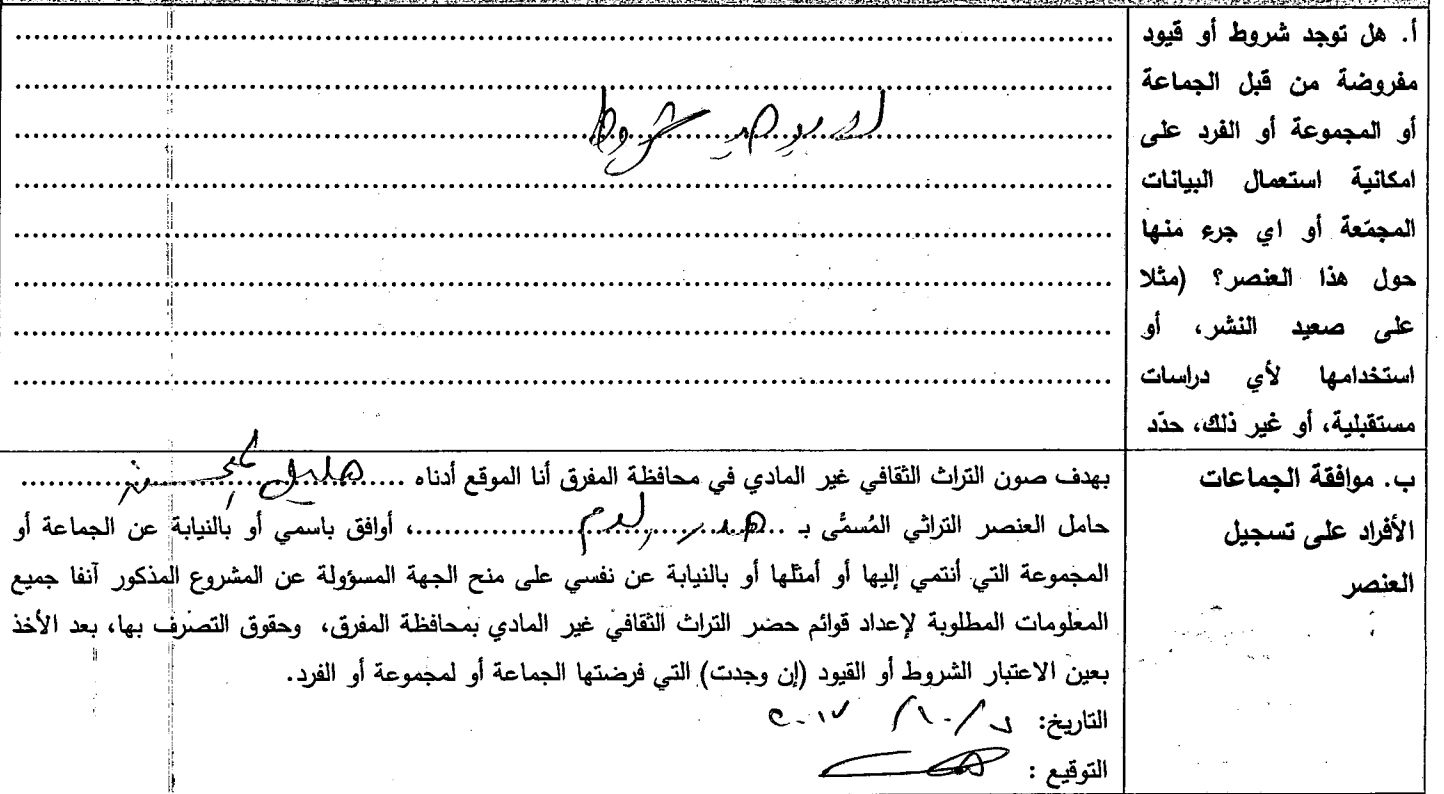 أ. هل توجد شروط أو قيود
مفروضة من قبل الجماعة
أو المجموعة أو الفرد على
امكانية استعمال البيانات
المجمّعة أو اي جرء منها
حول هذا العنصر؟ (مثلا
على صعيد النشر، أو
استخدامها لأي دراسات
مستقبلية، أو غير ذلك، حدّد
لا يوجد شروط
ب. موافقة الجماعات
الأفراد على تسجيل
العنصر
بهدف صون التراث الثقافي غير المادي في محافظة المفرق أنا الموقع أدناه
حامل العنصر التراثي المُسمَّى بـ ، أوافق باسمي أو بالنيابة عن الجماعة أو
المجموعة التي أنتمي إليها أو أمثلها أو بالنيابة عن نفسي على منح الجهة المسؤولة عن المشروع المذكور آنفا جميع
المعلومات المطلوبة لإعداد قوائم حضر التراث الثقافي غير المادي بمحافظة المفرق، وحقوق التصرف بها، بعد الأخذ
بعين الاعتبار الشروط أو القيود (إن وجدت) التي فرضتها الجماعة أو لمجموعة أو الفرد.
التاريخ:
التوقيع :